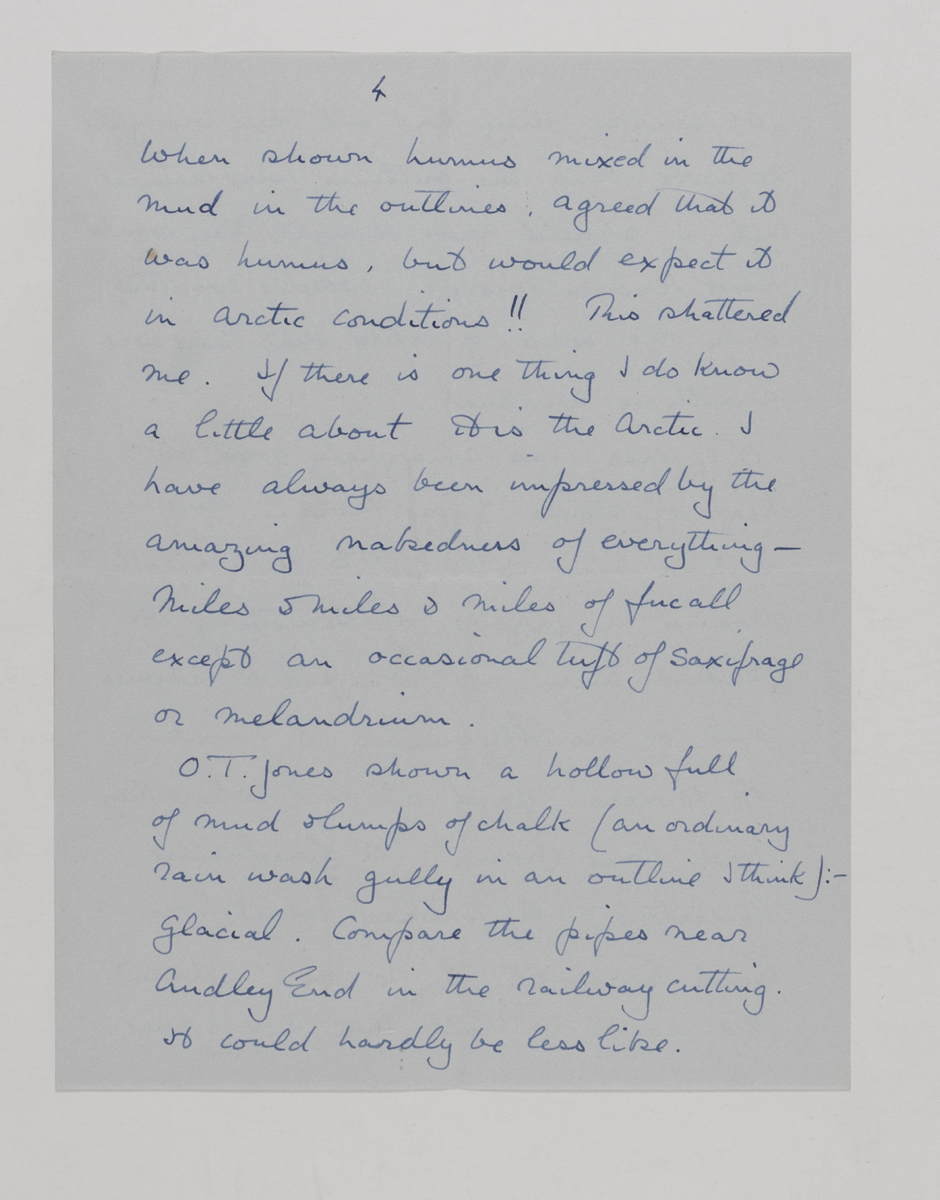 4
When shown humus mixed in the
mud in the outlines, agreed that it
was humus, but would expect it
in Arctic conditions!! This shattered
me. If there is one thing I do know
a little about it is the Arctic. I
have always been impressed by the
amazing nakedness of everything—
Miles & miles & miles of fucall
except an occasional tuft of Saxifrage
or melandrium.
O.T. Jones shown a hollow full
of mud & lumps of chalk (an ordinary
rain wash gully in an outline I think):-
Glacial. Compare the pipes near
Audley End in the railway cutting.
It could hardly be less like.